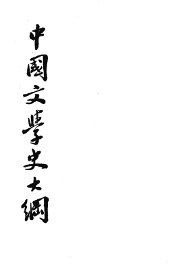 中國文學史大綱